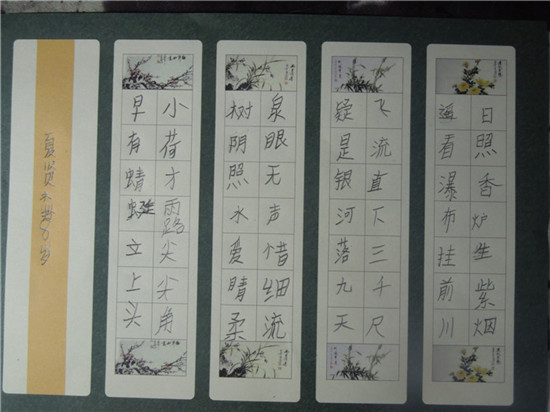 日照香炉生紫烟
遥看瀑布挂前川
飞流直下三千尺
疑是银河落九天
泉眼无声惜细流
树阴照水爱晴柔
小荷才露尖尖角
早有蜻蜓立上头
8岁